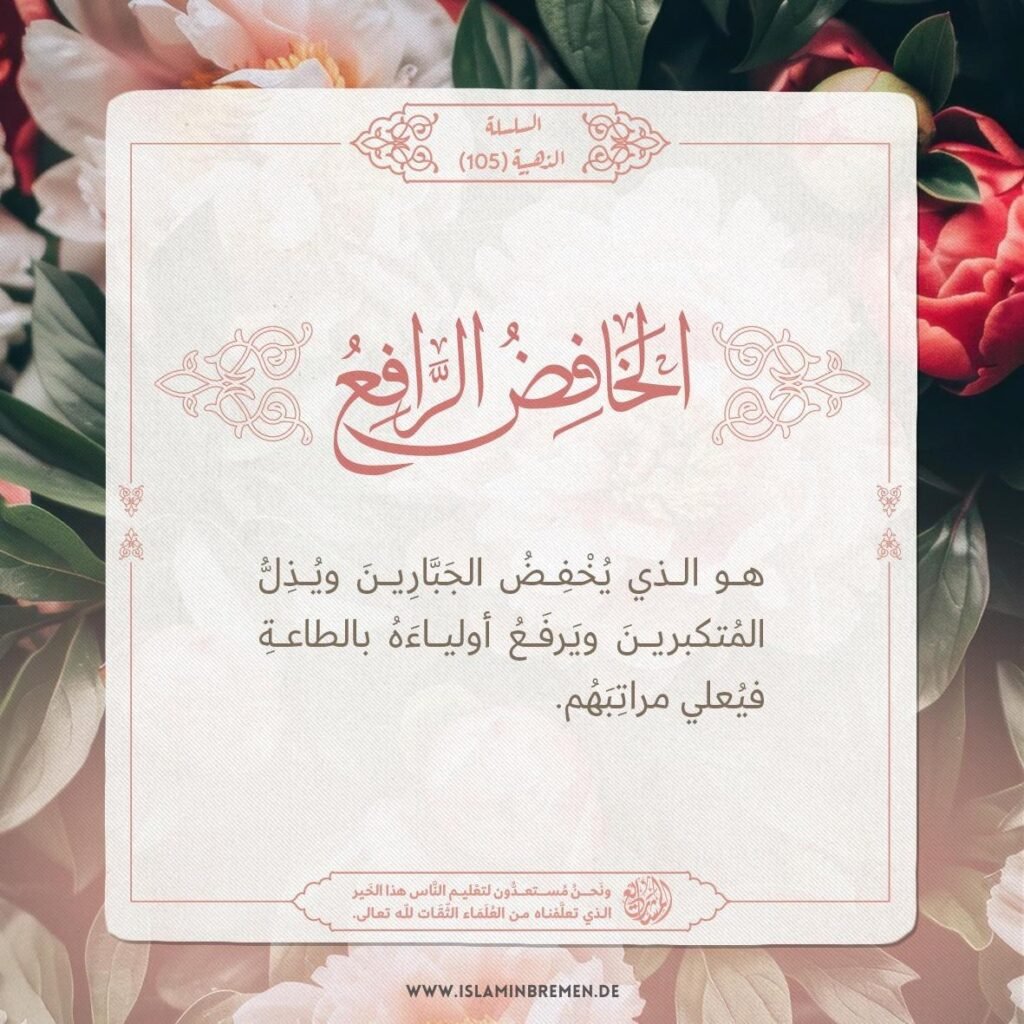 السلسلة
الذهبية (105)
الخَافِضُ الرَّافِعُ
هو الذي يُخْفِضُ الجَبَّارِينَ ويُذِلُّ
المُتكبرينَ ويَرفَعُ أولياءَهُ بالطاعةِ
فيُعلي مراتِبَهُم.
ونَحنُ مُستعدُّون لتعْليم النَّاس هذا الخَير
الذي تعلَّمْناه من العُلَمَاء الثِّقَات للَّه تعالى.
WWW.ISLAMINBREMEN.DE